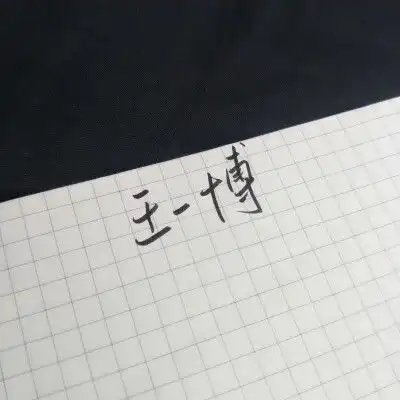 王一博